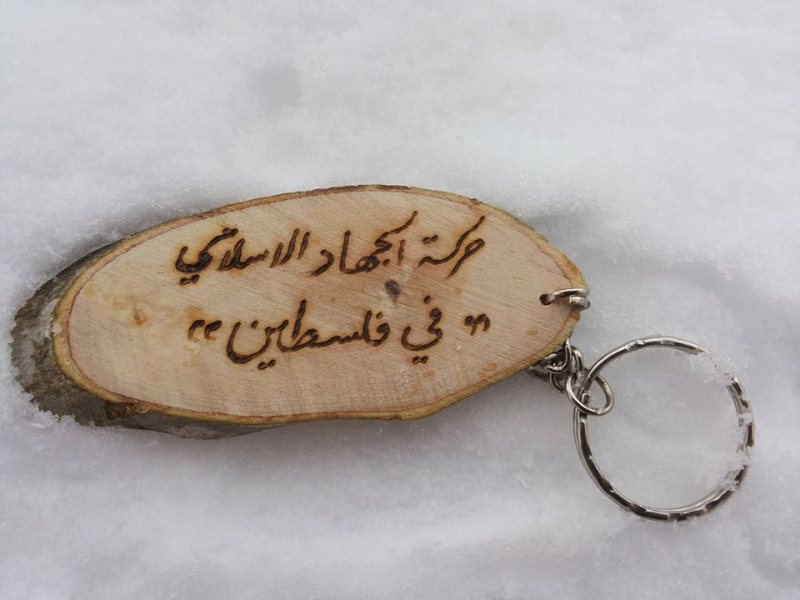 حركة الجهاد الاسلامي
" في فلسطين "